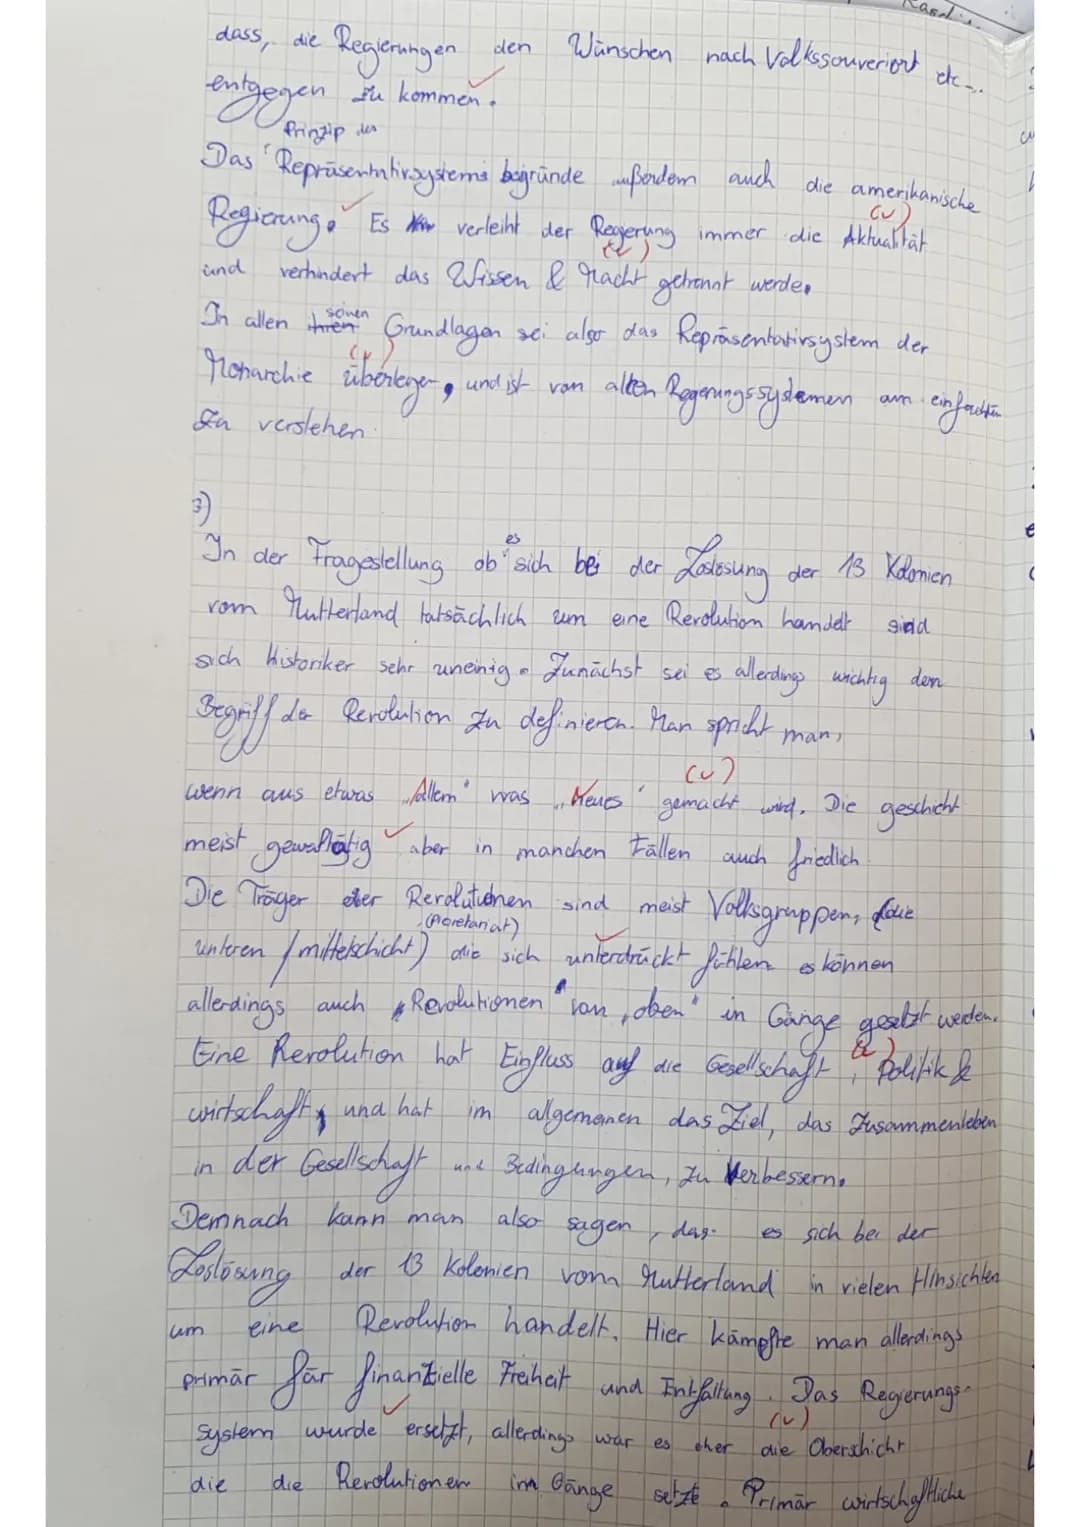 dass, die Regierungen den Wünschen nach Volkssouveriort etc...
entgegen zu kommen.
Prinzip des
Das Repräsentativsystems begründe außerdem auch die amerikanische
Regierung. Es verleiht der Regierung immer die Aktualität
und verhindert das Wissen & Macht getrennt werde.
seinen
In allen ihren Grundlagen sei also das Repräsentativsystem der
Monarchie überlegen, und ist von allen Regierungssystemen am einfachsten
zu verstehen.
3)
es
In der Fragestellung ob sich bei der Loslösung der 13 Kolonien
vom Mutterland tatsächlich um eine Revolution handelt sind
sich Historiker sehr uneinig. Zunächst sei es allerdings wichtig den
Begriff der Revolution zu definieren. Man spricht man,
wenn aus etwas „Altem" was „Neues" gemacht wird. Die geschieht
meist gewalttätig aber in manchen Fällen auch friedlich.
Die Träger der Revolutionen sind meist Volksgruppen, (die
unteren / mittelschicht) die sich unterdrückt fühlen es können
allerdings auch „Revolutionen" von „oben" in Gänge gesetzt werden.
Eine Revolution hat Einfluss auf die Gesellschaft, Politik &
wirtschaft, und hat im allgemeinen das Ziel, das Zusammenleben
in der Gesellschaft und Bedingungen, zu Verbessern.
Demnach kann man also sagen, das es sich bei der
Loslösung der 13 Kolonien vom Mutterland in vielen Hinsichten
um eine Revolution handelt. Hier kämpfte man allerdings
primär für finanzielle Freiheit und Entfaltung. Das Regierungs-
system wurde ersetzt, allerdings war es eher die Oberschicht
die die Revolutionen im Gänge setzte. Primär wirtschaftliche